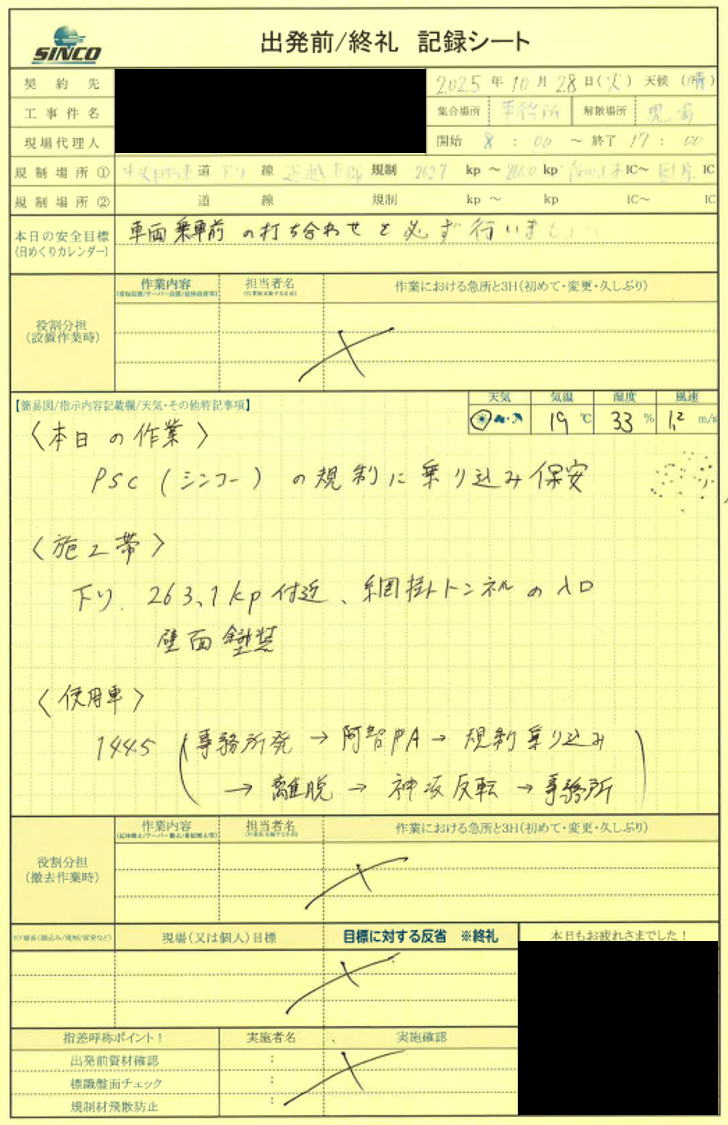 SINCO
出発前/終礼 記録シート
契約先
2025年10月28日(火) 天候(晴)
工事件名
集合場所 事務所 解散場所 現場
現場代理人
開始 8:00 ～ 終了 17:00
規制場所① 道 下り 線 規制 kp ～ kp IC～ IC
規制場所② 道 線 規制 kp ～ kp IC～ IC
本日の安全目標
(日めくりカレンダー)
車両乗車前の打ち合わせを必ず行いましょう
作業内容 担当者名 作業における急所と3H(初めて・変更・久しぶり)
役割分担
(設置作業時)
【簡易図/指示内容記載欄/天気・その他特記事項】
天気 気温 湿度 風速
19℃ 33% 1.2m/s
〈本日の作業〉
PSC(シンコー)の規制に乗り込み保安
〈施工帯〉
下り、263.1kp付近、網掛トンネルの入口
壁面塗装
〈使用車〉
1445 (事務所発→阿智PA→規制乗り込み
→離脱→神坂反転→事務所)
作業内容 担当者名 作業における急所と3H(初めて・変更・久しぶり)
役割分担
(撤去作業時)
現場(又は個人)目標 目標に対する反省 ※終礼 本日もお疲れさまでした!
指差呼称ポイント! 実施者名 実施確認
出発前資材確認 :
標識盤面チェック :
規制材飛散防止 :